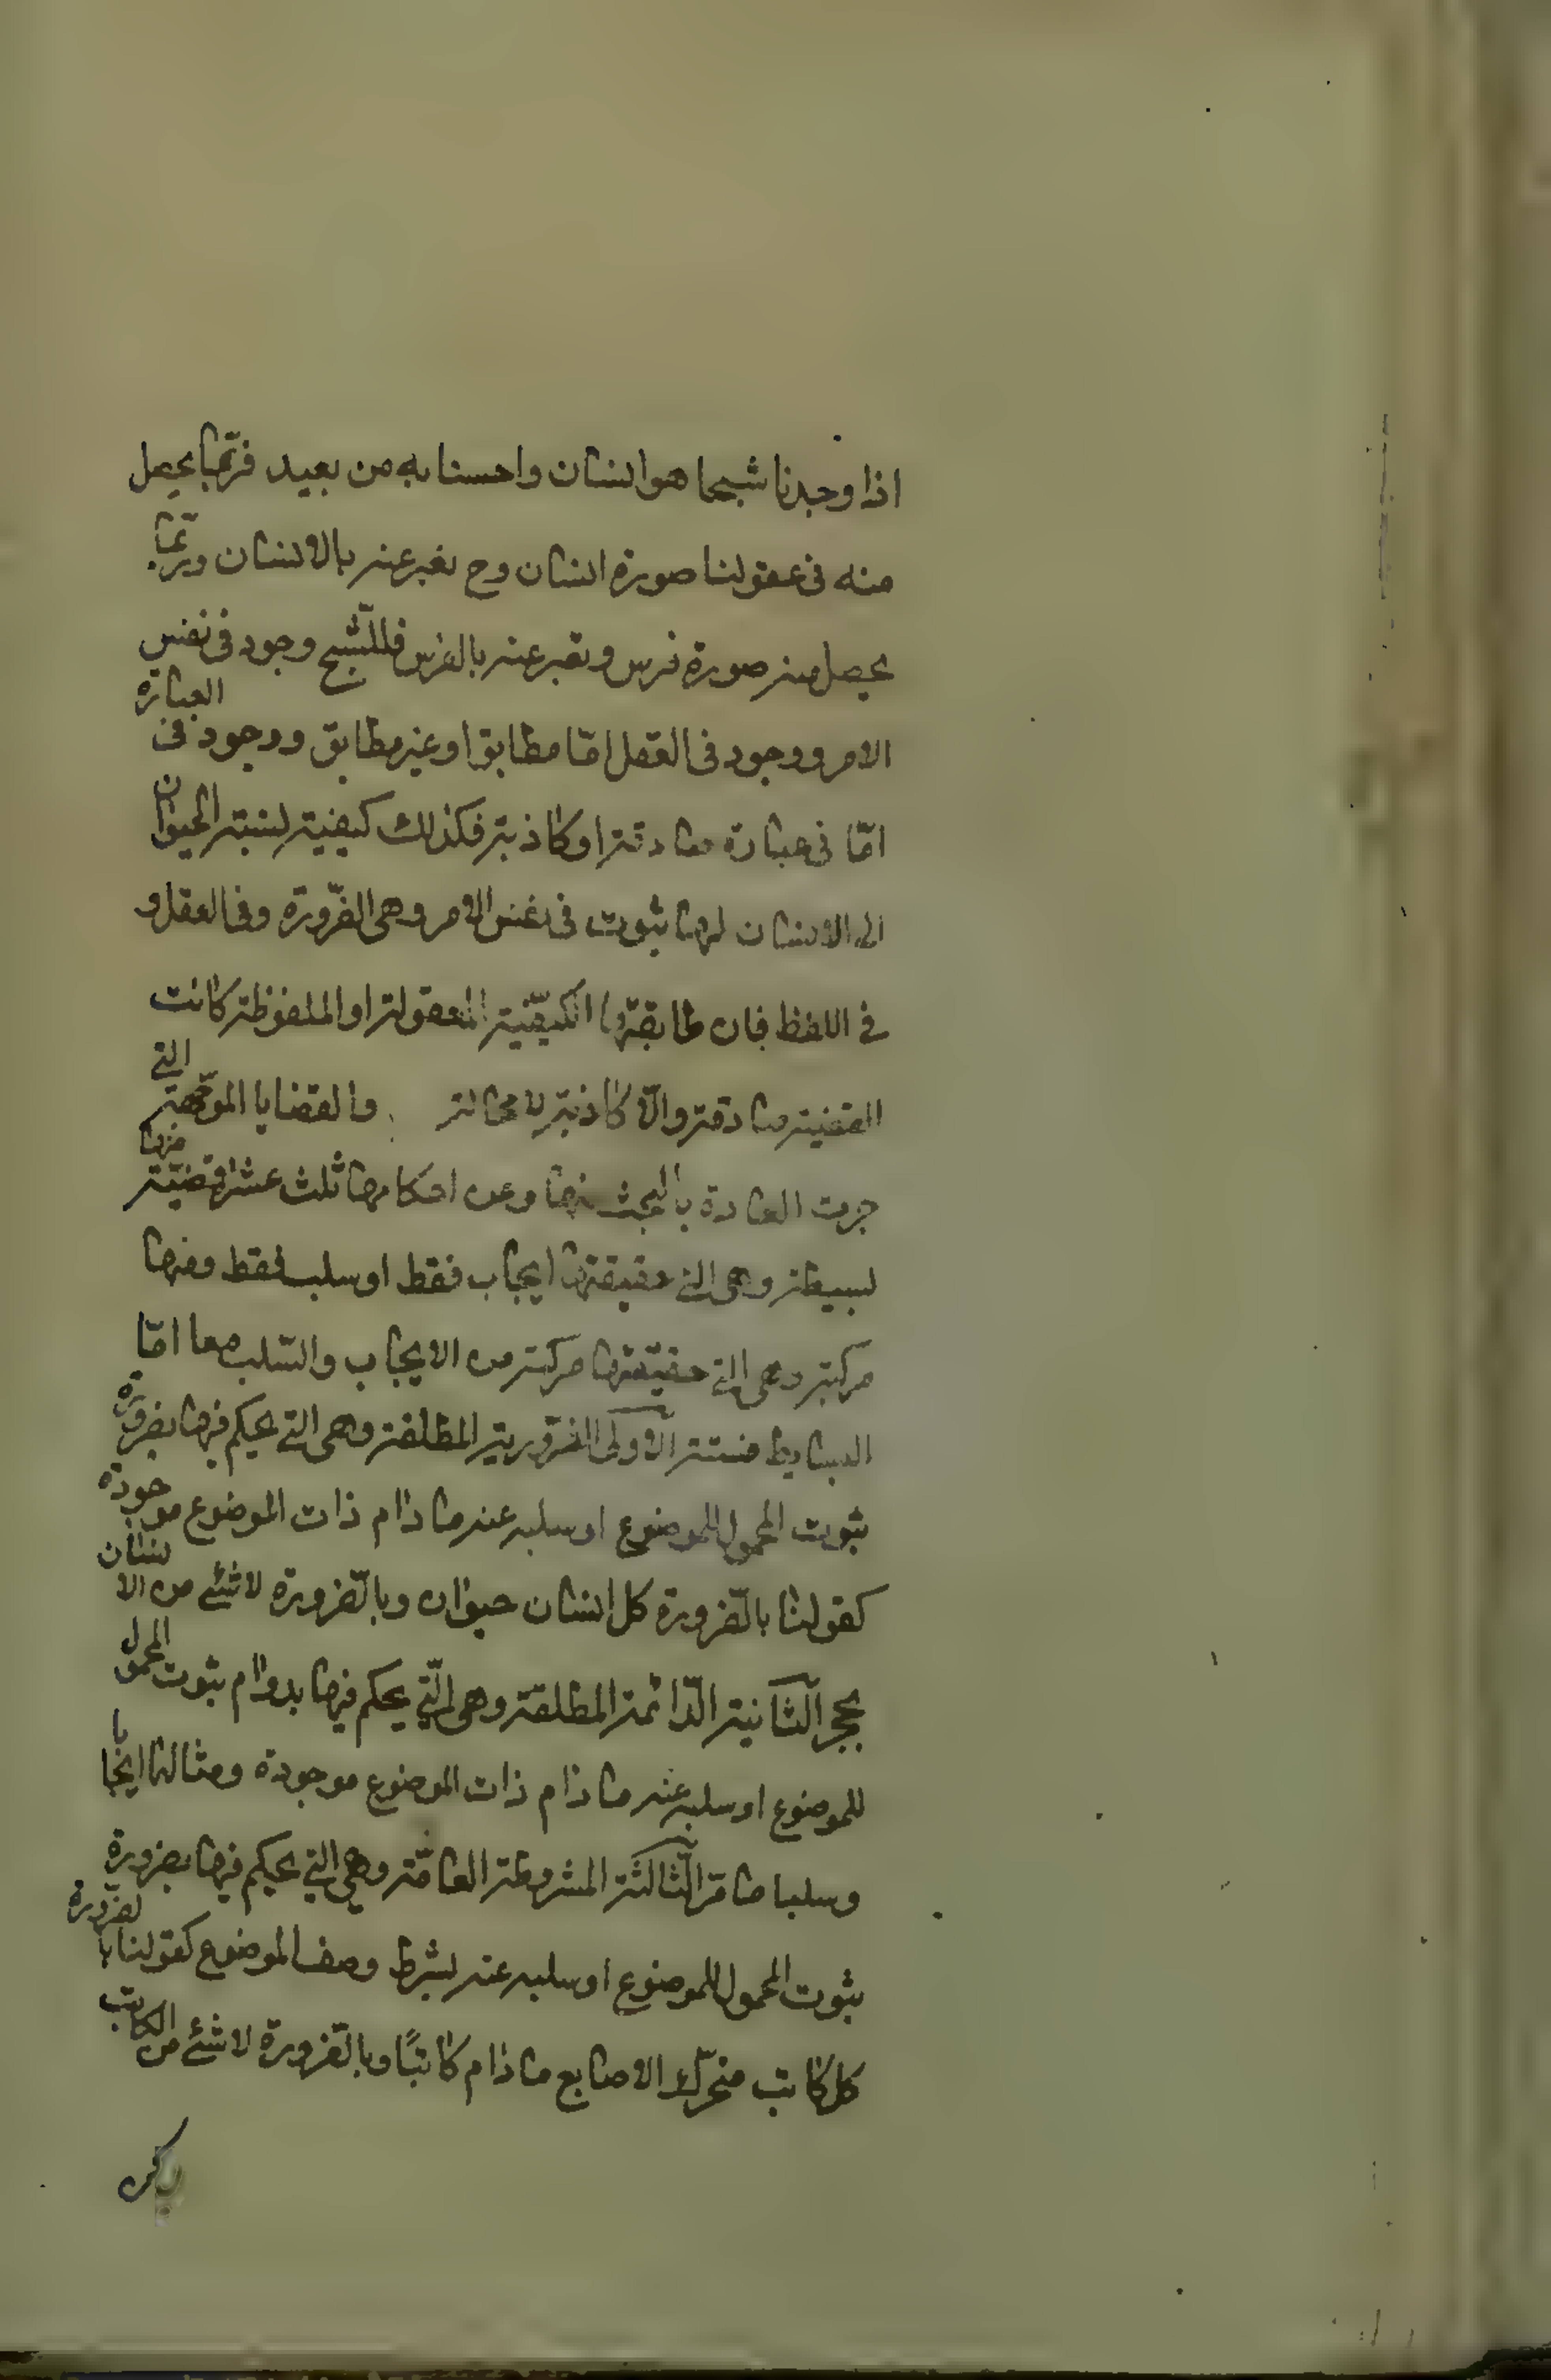 اذا وجدنا شبحا هو انسان واحسنا به من بعيد فربّما يحصل
منه فى عقولنا صورة انسان وح نعبر عنه بالانسان وربّما
يحصل منه صورة فرس ونعبر عنه بالفرس فللشّبح وجود فى نفس
الامر ووجود فى العقل امّا مطابق او غير مطابق ووجود فى العبارة
امّا فى عبارة صادقة او كاذبة فكذلك كيفية لنسبة الحيوان
الى الانسان لها ثبوت فى نفس الامر وهى الضّرورة وفى العقل و
فى اللفظ فان طابقتها الكيفيّة المعقولة او الملفوظة كانت
القضية صادقة والّا كاذبة لا محالة والقضايا الموجّهة التى
جرت العادة بالبحث عنها وعن احكامها ثلث عشر قضيّة منها
بسيطة وهى التى حقيقتها ايجاب فقط او سلب فقط ومنها
مركبة وهى التى حقيقتها مركبة من الايجاب والسّلب معا امّا
البسايط فستة الاولى الضّرورية المطلقة وهى التى يحكم فيها بضرورة
ثبوت المحمول للموضوع او سلبه عنه ما دام ذات الموضوع موجودة
كقولنا بالضّرورة كل انسان حيوان وبالضّرورة لا شئ من الانسان
بحجر الثّانية الدّائمة المطلقة وهى الّتى يحكم فيها بدوام ثبوت المحمول
للموضوع او سلبه عنه ما دام ذات الموضوع موجودة ومثالها ايجابا
وسلبا ما مرّ الثّالثة المشروطة العامّة وهى التى يحكم فيها بضرورة
ثبوت المحمول للموضوع او سلبه عنه بشرط وصف الموضوع كقولنا بالضرورة
كل كاتب متحرّك الاصابع ما دام كاتبًا وبالضّرورة لا شئ من الكاتب